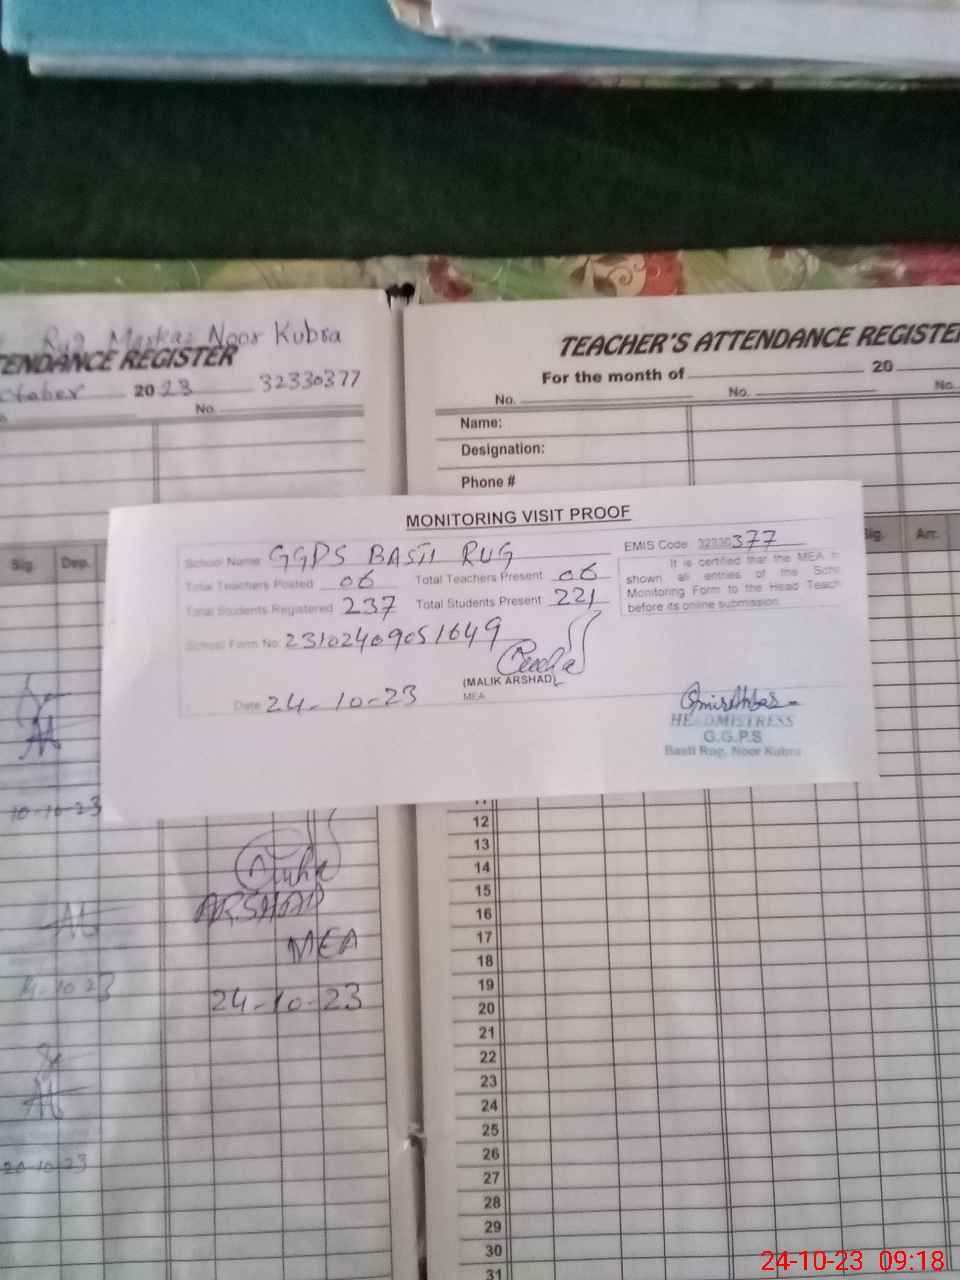 Rug Markaz Noor Kubra
TENDANCE REGISTER
ctober 2023 32330377
No.
Sig. Dep.
10-10-23
ARSHAD
MEA
24-10-23
TEACHER'S ATTENDANCE REGISTE
For the month of 20
No. No. No.
Name:
Designation:
Phone #
Sig. Arr.
MONITORING VISIT PROOF
School Name GGPS BASTI RUG
Total Teachers Posted 06 Total Teachers Present 06
Total Students Registered 237 Total Students Present 221
School Form No: 23102409051649
(MALIK ARSHAD)
MEA
Date 24-10-23
EMIS Code 32330377
It is certified that the MEA
shown all entries of the Scho
Monitoring Form to the Head Teach
before its online submission
HEADMISTRESS
G.G.P.S
Basti Rug, Noor Kubra
11
12
13
14
15
16
17
18
19
20
21
22
23
24
25
26
27
28
29
30
31
24-10-23 09:18